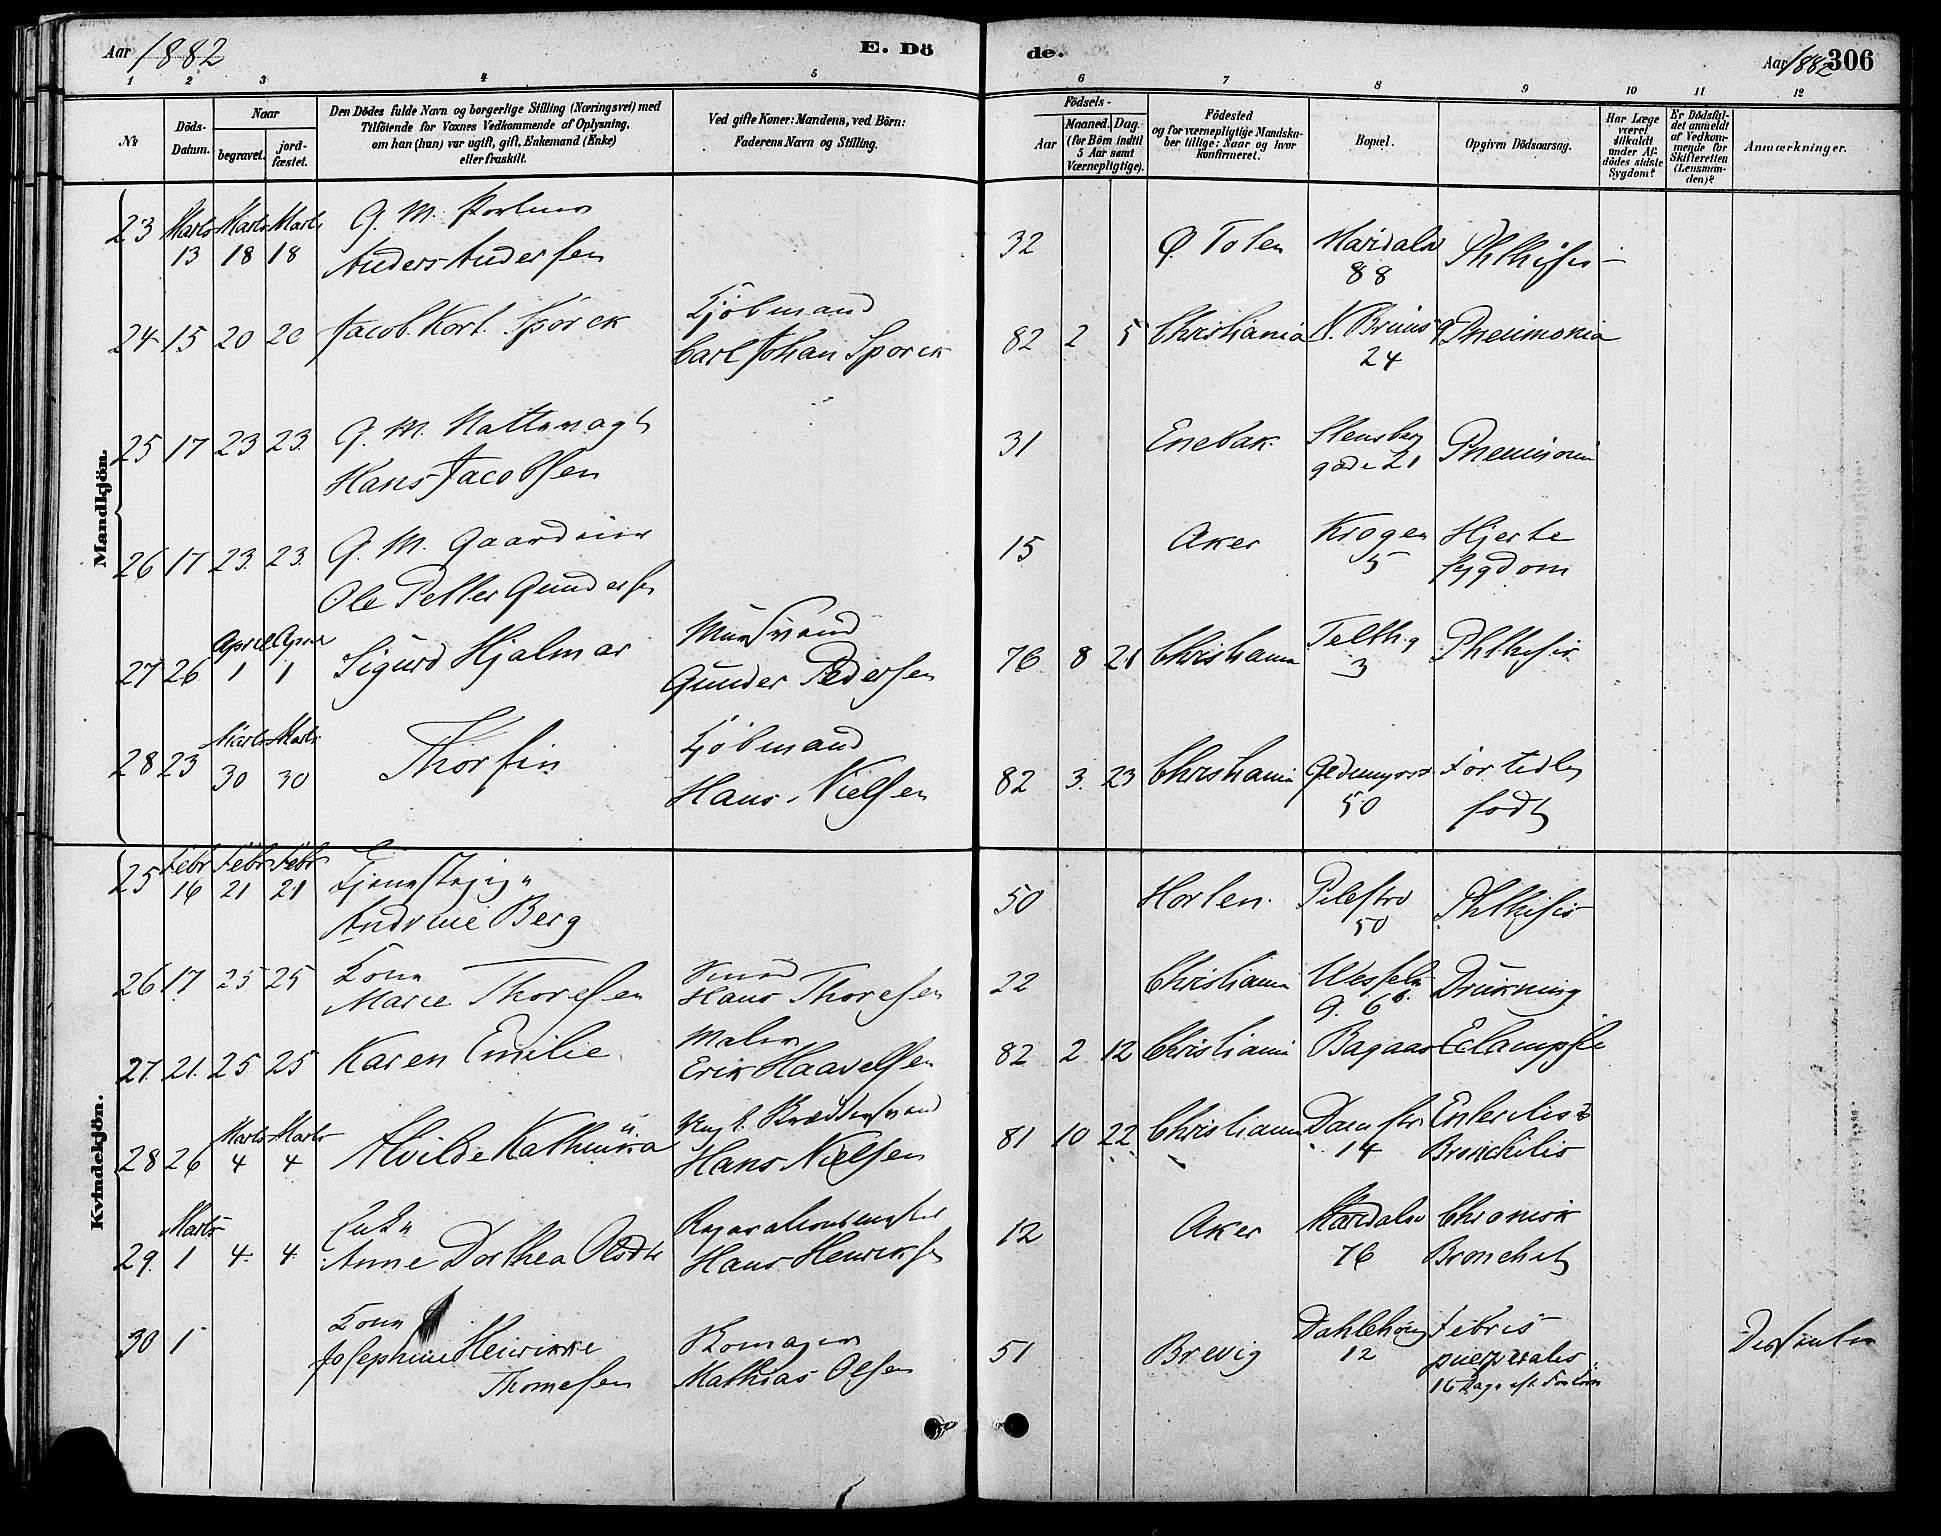 Aar 1882
E. Dö
de.
Aar 1882 306
1 2 3 4 5 6 7 8 9 10 11 12
№
Döds-Datum.
Naar
begravet.
jord-fæstet.
Den Dödes fulde Navn og borgerlige Stilling (Næringsvei) med
Tilföiende for Voxnes Vedkommende af Oplysning,
om han (hun) var ugift, gift, Enkemand (Enke)
eller fraskilt.
Ved gifte Koner: Mandens, ved Börn:
Faderens Navn og Stilling.
Födsels-
Aar
Maaned. Dag.
(for Börn indtil
5 Aar samt
Værnepligtige).
Födested
og for værnepligtige Mandska-
ber tillige: Naar og hvor
konfirmeret.
Bopæl.
Opgiven Dödsaarsag.
Har Læge
været
tilkaldt
under Af-
dödes sidste
Sygdom?
Er Dödsfal-
det anmeldt
af Vedkom-
mende for
Skifteretten
(Lensman-
den)?
Anmærkninger.
Mandkjön.
23 Marts 13 Marts 18 Marts 18 G. M.
Anders Andersen
32 Ø. Toten Maridalsv 88 Phthisis
24 15 20 20 Jacob Kort Spörck
Kjöbmand
Carl Johan Sporck
82 2 5 Christiania N. Bruns g 24 Pneumonia
25 17 23 23. G. M. Nattevagt
Hans Jacobsen
31 Enebak. Stensberg gade 21 Pneumoni
26 17 23. 23. G. M.
Ole Petter Gundersen
15 Aker Krogen 5 Hjerte
sygdom
27 26 April 1 April 1 Sigurd Hjalmar
MurSvend
Gunder Pedersen
76 8 21 Christiania Telthg 3 Phthisis
28 23 Marts 30 Marts 30 Thorfin
Kjöbmand
Hans Nielsen
82 3. 23 Christiania 50 For tidlig
födt
Kvindekjön.
25 Febr 16 Febr 21 Febr 21 Tjenestepige
Andrine Berg
50 Horten. Pilestr 50 Phthisis
26 17. 25 25 Kone
Marie Thoresen
Smed
Hans Thoresen
22 Christiania Wessels g. 6 b. Drukning
27. 21. 25 25 Karen Emilie
Maler
Erik Haavelsen
82 2 12 Christiania Bagaas Eclampsie
28 26 Marts 4 Marts 4 Alvilde Kathinka
Skræddersvend
Hans Nielsen
81 10 22 Christiania Damstr. 14 Enteritis &
Bronchitis
29. Marts 1 4. 4 Enke
Anne Dorthea Olsdtr
Reparationsmester
Hans Henriksen
12 Aker Maridalsv 76 Chronisk
Bronchit
30 1 Kone
Josephine Henrikke
Thomesen
Skomager
Mathias Olsen
51 Brevig 12 Febris
puerperalis
16 Dage eft.